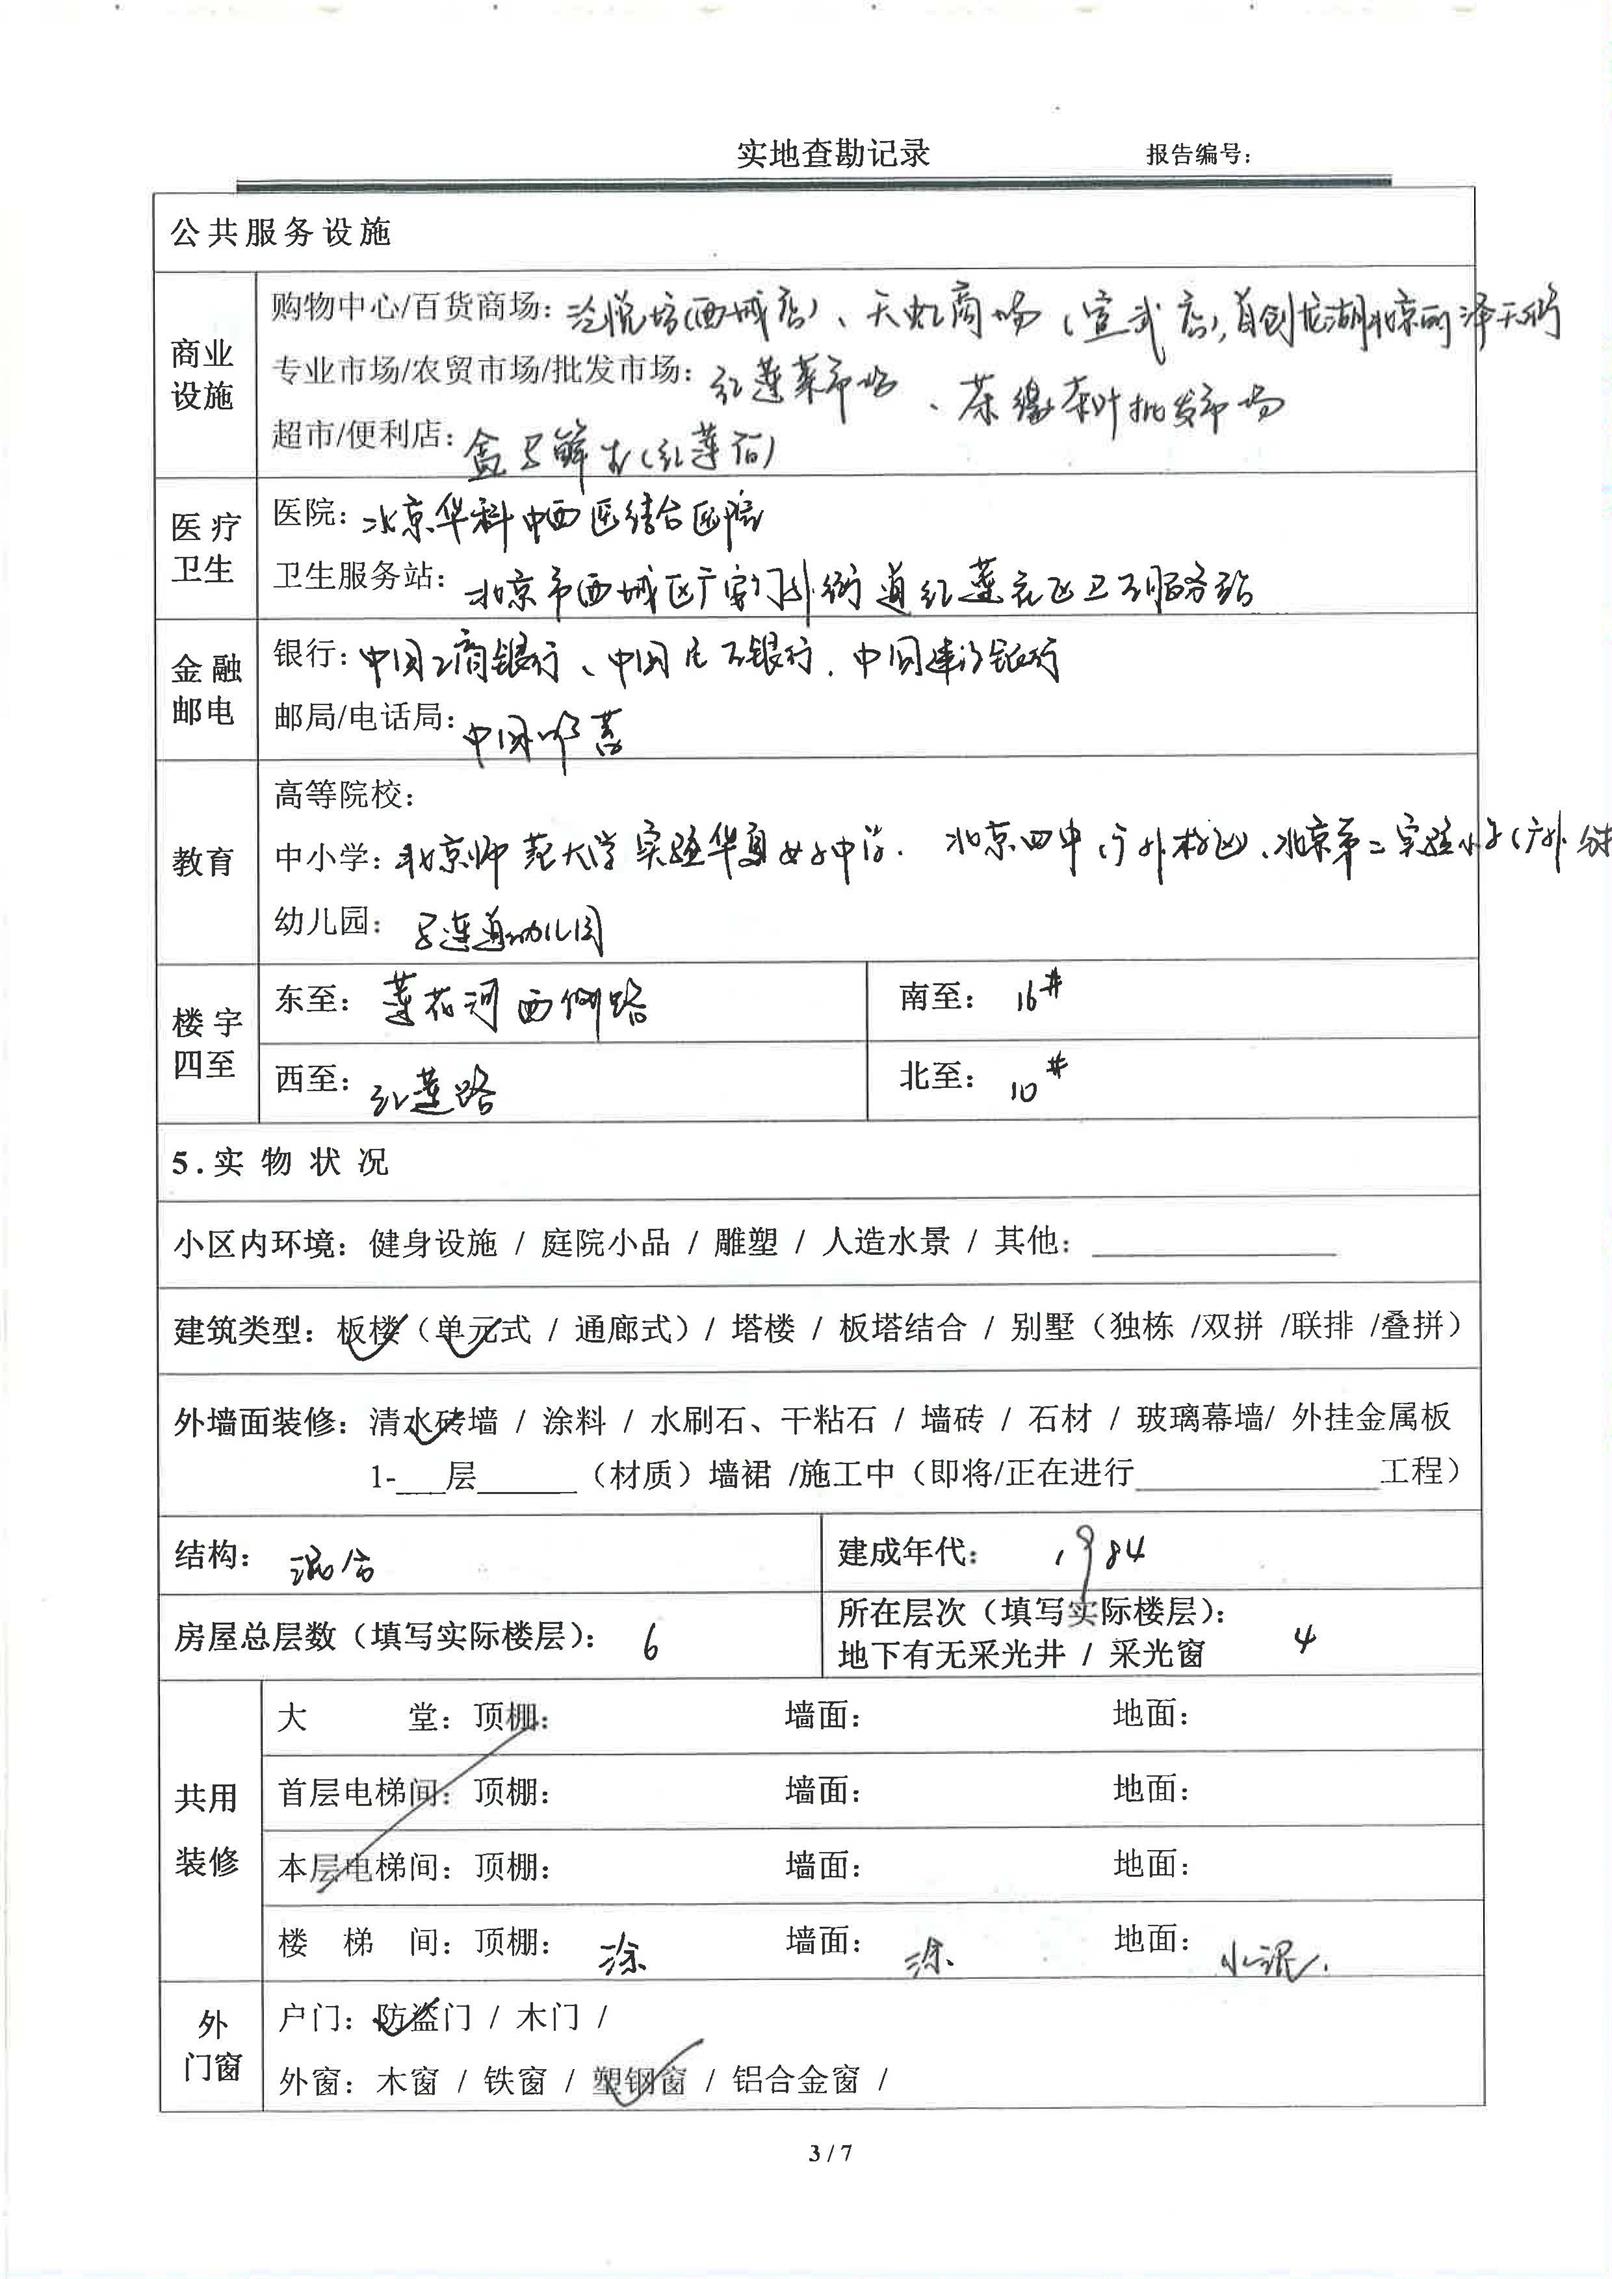 实地查勘记录 报告编号：
公共服务设施
商业设施
购物中心/百货商场：悦坊(西城店)、天虹商场（宣武店），首创龙湖北京丽泽天街
专业市场/农贸市场/批发市场：红莲菜市场、茶缘茶叶批发市场
超市/便利店：盒马鲜生(红莲店)
医疗卫生
医院：北京华科中西医结合医院
卫生服务站：北京市西城区广安门外街道红莲社区卫生服务站
金融邮电
银行：中国工商银行、中国民生银行、中国建设银行
邮局/电话局：中国邮政
教育
高等院校：
中小学：北京师范大学实验华夏女子中学、北京四中(广外校区)、北京第二实验小学(广外分校
幼儿园：马连道幼儿园
楼宇四至
东至：莲花河西侧路 南至：16#
西至：红莲路 北至：10#
5.实物状况
小区内环境：健身设施 / 庭院小品 / 雕塑 / 人造水景 / 其他：
建筑类型：板楼（单元式 / 通廊式）/ 塔楼 / 板塔结合 / 别墅（独栋 /双拼 /联排 /叠拼）
外墙面装修：清水砖墙 / 涂料 / 水刷石、干粘石 / 墙砖 / 石材 / 玻璃幕墙/ 外挂金属板
1-___层______（材质）墙裙 /施工中（即将/正在进行_______________工程）
结构：混合 建成年代：1984
房屋总层数（填写实际楼层）：6 所在层次（填写实际楼层）：4
地下有无采光井 / 采光窗
共用装修
大堂：顶棚： 墙面： 地面：
首层电梯间：顶棚： 墙面： 地面：
本层电梯间：顶棚： 墙面： 地面：
楼梯间：顶棚：涂 墙面：涂 地面：水泥
外门窗
户门：防盗门 / 木门 /
外窗：木窗 / 铁窗 / 塑钢窗 / 铝合金窗 /
3 / 7